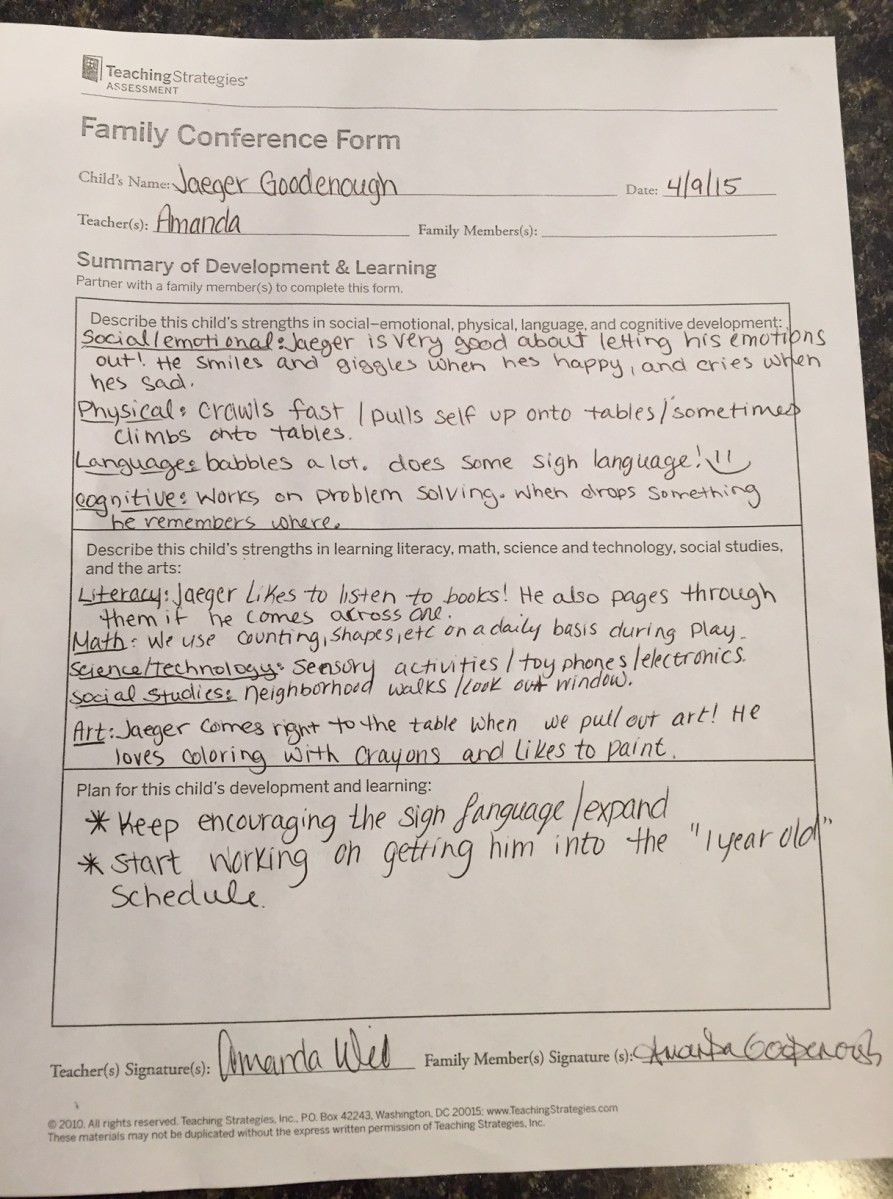 TeachingStrategies®
ASSESSMENT
Family Conference Form
Child's Name: Jaeger Goodenough Date: 4/9/15
Teacher(s): Amanda Family Members(s):
Summary of Development & Learning
Partner with a family member(s) to complete this form.
Describe this child's strengths in social–emotional, physical, language, and cognitive development:
Social/emotional: Jaeger is very good about letting his emotions
out! He smiles and giggles when hes happy, and cries when
hes sad.
Physical: crawls fast / pulls self up onto tables/sometimes
climbs onto tables.
Language: babbles a lot. does some sign language!
Cognitive: works on problem solving. when drops something
he remembers where.
Describe this child's strengths in learning literacy, math, science and technology, social studies,
and the arts:
Literacy: Jaeger likes to listen to books! He also pages through
them if he comes across one.
Math: We use counting, shapes, etc on a daily basis during play.
Science/technology: sensory activities / toy phones/electronics.
Social studies: neighborhood walks /look out window.
Art: Jaeger comes right to the table when we pull out art! He
loves coloring with crayons and likes to paint.
Plan for this child's development and learning:
* Keep encouraging the sign language/expand
* Start working on getting him into the "1 year old"
schedule.
Teacher(s) Signature(s): Amanda Family Member(s) Signature (s): Goodenough
© 2010. All rights reserved. Teaching Strategies, Inc., P.O. Box 42243, Washington, DC 20015; www.TeachingStrategies.com
These materials may not be duplicated without the express written permission of Teaching Strategies, Inc.